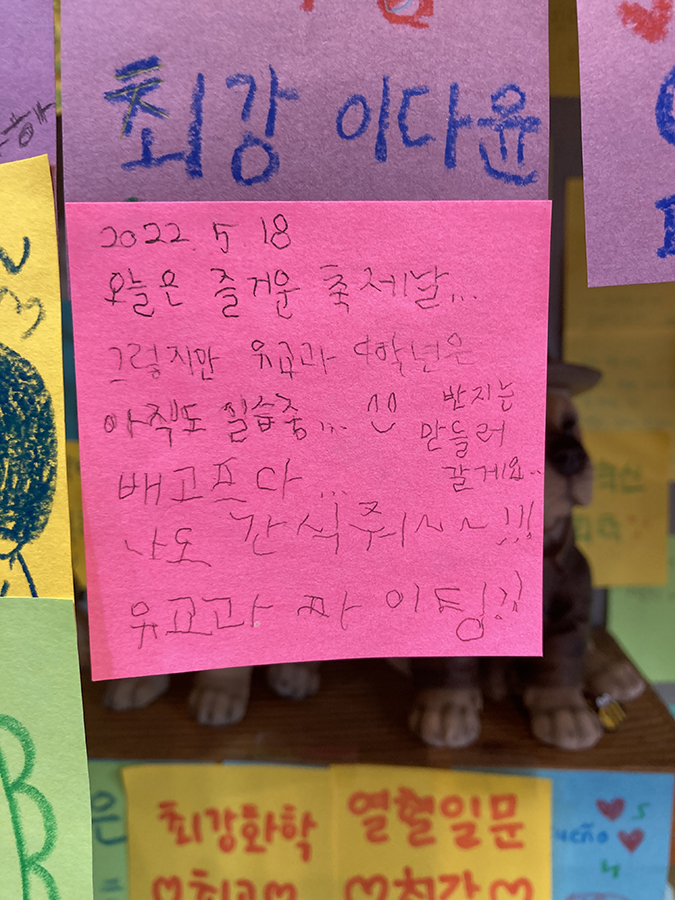 최강 이다윤
2022. 5 18
오늘은 즐거운 축제날...
그렇지만 유교과 4학년은
아직도 실습중...
반지는
만들러
갈게요..
배고프다...
나도 간식줘~~~!!!
유교과 화이팅!!
은
최강화학
♡최고♡
열혈일문
♡최강♡
ueño